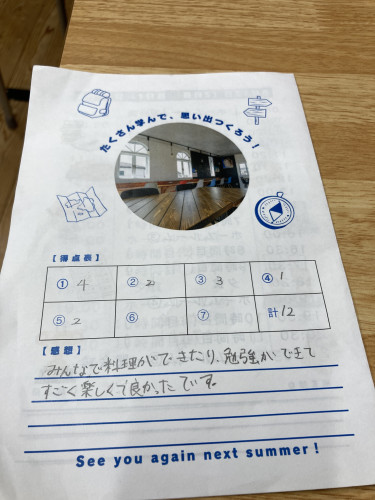 たくさん学んで、思い出つくろう！
【得点表】
① 4 ② 2 ③ 3 ④ 1
⑤ 2 ⑥ ⑦ 計12
【感想】
みんなで料理ができたり、勉強ができて
すごく楽しくて良かったです。
See you again next summer!